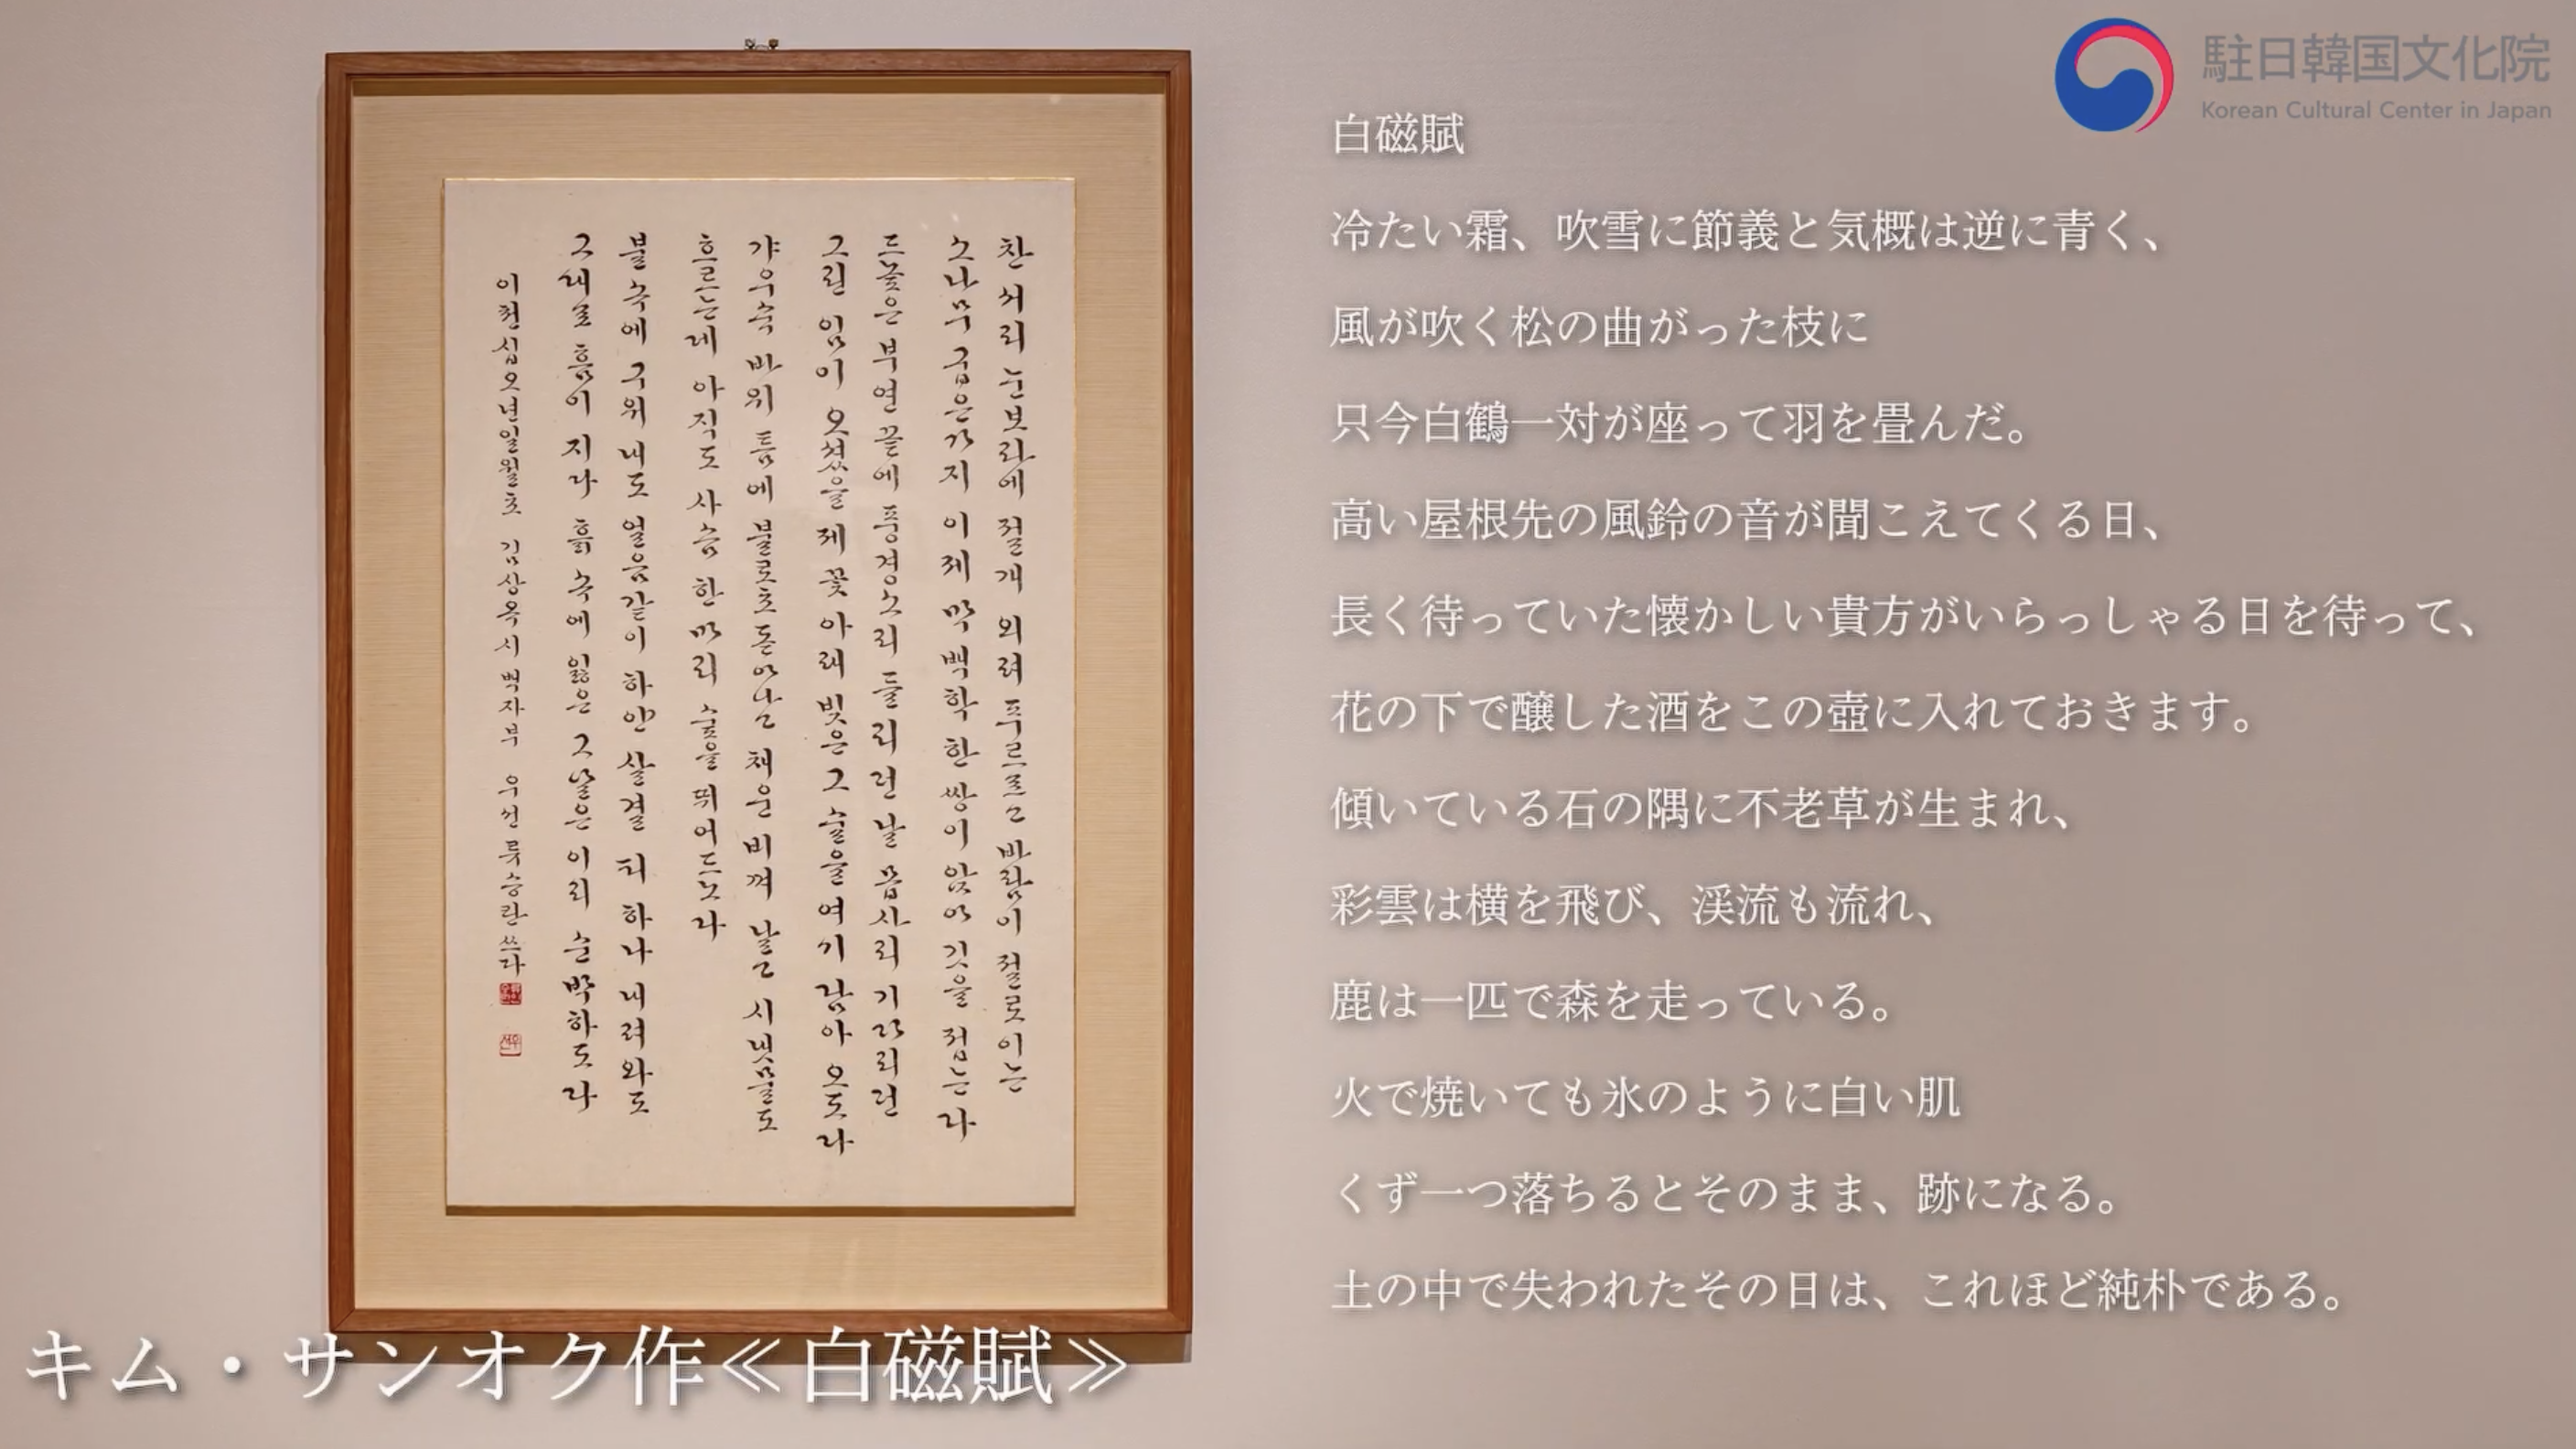 찬 서리 눈보라에 절개 외려 푸르르고 바람이 절로 이는
소나무 굽은 가지 이제 막 백학 한 쌍이 앉아 깃을 접는다
드높은 부연 끝에 풍경소리 들리던 날 몹사리 기다리던
그린 임이 오셨을 제 꽃 아래 빚은 그 술을 여기 담아 오도다
갸우숙 바위 틈에 불로초 돋아나고 채운 비껴 날고 시냇물도
흐르는데 아직도 사슴 한 마리 숲을 뛰어드노다
불 속에 구워 내도 얼음같이 하얀 살결 티 하나 내려와도
그대로 흠이 지다 흙 속에 잃은 그날은 이리 순박하도다
이천십오년일월초 김상옥시 백자부 우선 류승란 쓰다
駐日韓国文化院
Korean Cultural Center in Japan
白磁賦
冷たい霜、吹雪に節義と気概は逆に青く、
風が吹く松の曲がった枝に
只今白鶴一対が座って羽を畳んだ。
高い屋根先の風鈴の音が聞こえてくる日、
長く待っていた懐かしい貴方がいらっしゃる日を待って、
花の下で醸した酒をこの壺に入れておきます。
傾いている石の隅に不老草が生まれ、
彩雲は横を飛び、渓流も流れ、
鹿は一匹で森を走っている。
火で焼いても氷のように白い肌
くず一つ落ちるとそのまま、跡になる。
土の中で失われたその日は、これほど純朴である。
キム・サンオク作≪白磁賦≫